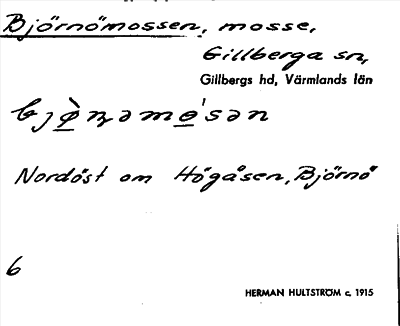 Björnömossen, mosse,
Gillberga sn,
Gillbergs hd, Värmlands län
bjö̀ṇəmo'sən
Nordöst om Högåsen, Björnö
6
HERMAN HULTSTRÖM c. 1915